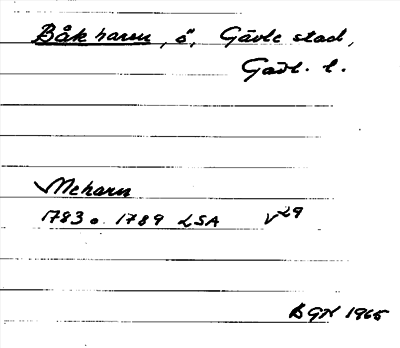 Båkharen, ö, Gävle stad,
Gävl. l.
Meharn
1783 o. 1789 LSA V29
BGN 1965